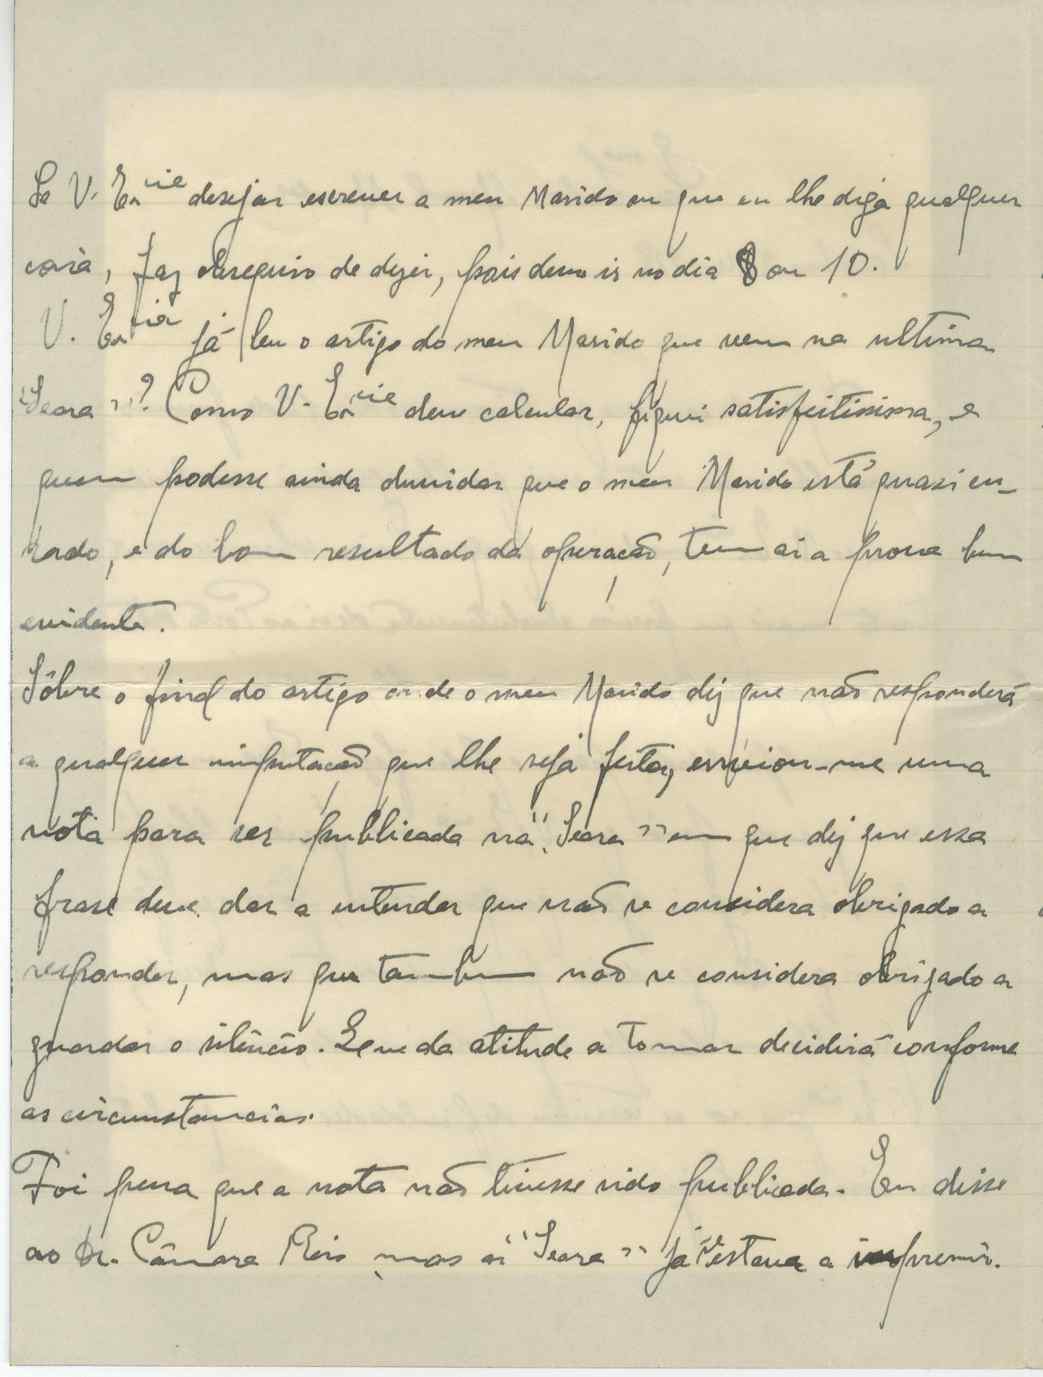 Se V. Ex.cia desejar escrever a meu Marido ou que eu lhe diga qualquer
coisa, faz obsequio de dizer, pois devo ir no dia 8 ou 10.
V. Ex.cia já leu o artigo do meu Marido que vem na ultima
"Seara"? Como V. Ex.cia deve calcular, fiquei satisfeitissima, e
quem podesse ainda duvidar que o meu Marido está quasi cu-
rado, e do bom resultado da operação, tem ai a prova bem
evidente.
Sôbre o final do artigo onde o meu Marido diz que não responderá
a qualquer imputação que lhe seja feita, enviou-me uma
nota para ser publicada na "Seara" em que diz que essa
frase deve dar a entender que não se considera obrigado a
responder, mas que tambem não se considera obrigado a
guardar o silêncio. E que da atitude a tomar decidirá conforme
as circunstancias.
Foi pena que a nota não tivesse sido publicada. Eu disse
ao Dr. Câmara Reis mas a "Seara" já estava a imprimir.